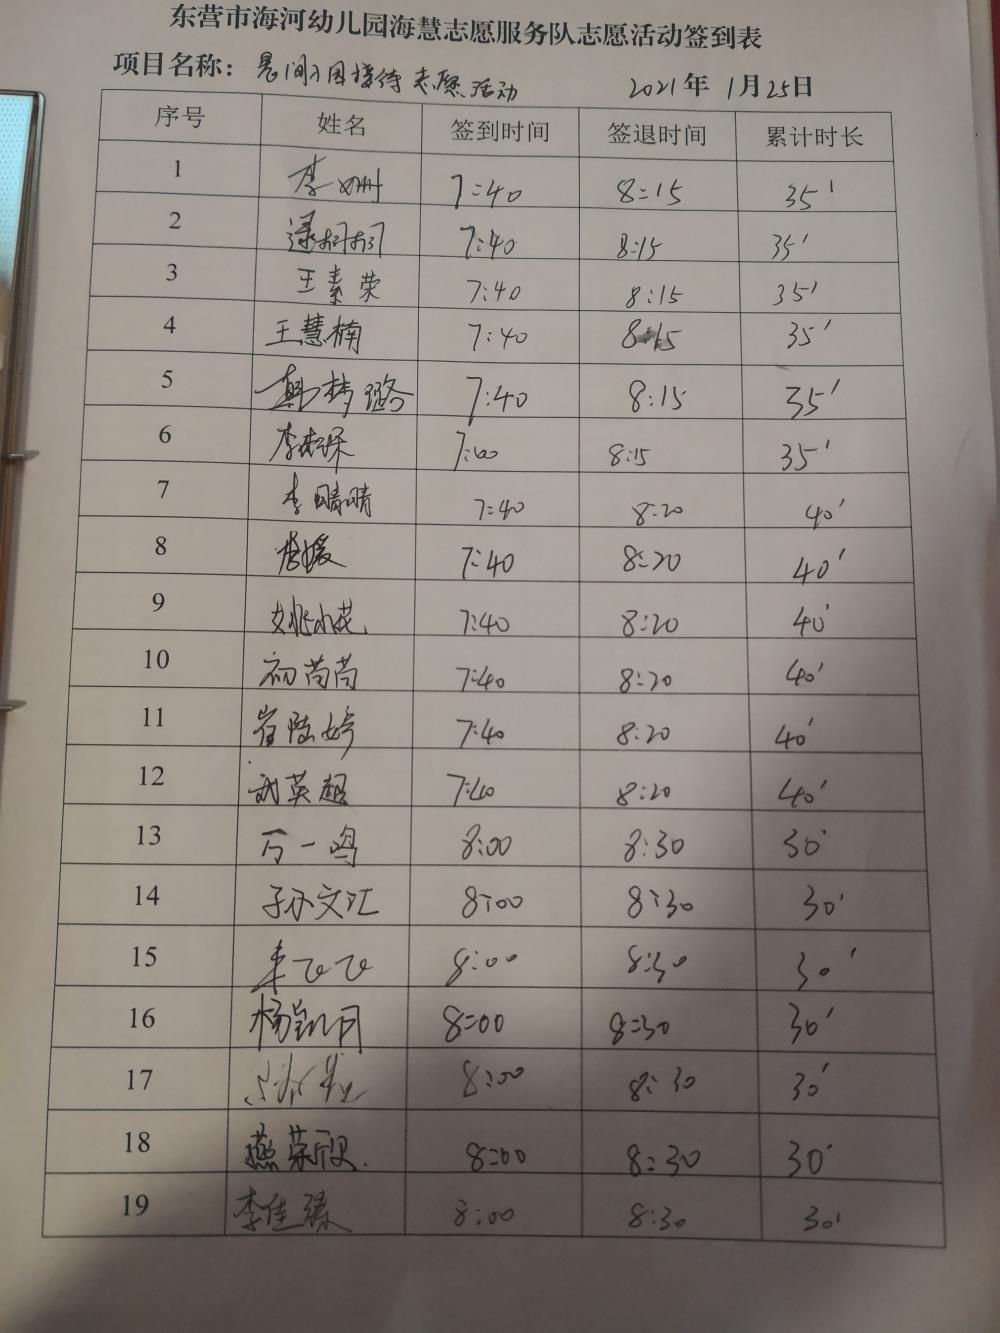 东营市海河幼儿园海慧志愿服务队志愿活动签到表
项目名称：晨间入园接待志愿活动 2021年1月25日
序号 姓名 签到时间 签退时间 累计时长
1 李姗姗 7:40 8:15 35'
2 逯珂珂 7:40 8:15 35'
3 王素荣 7:40 8:15 35'
4 王慧楠 7:40 8:15 35'
5 韩梦璐 7:40 8:15 35'
6 李 7:40 8:15 35'
7 李晴晴 7:40 8:20 40'
8 李媛 7:40 8:20 40'
9 姚冰花 7:40 8:20 40'
10 初苘苘 7:40 8:20 40'
11 崔陆婷 7:40 8:20 40'
12 武英超 7:40 8:20 40'
13 万一鸣 8:00 8:30 30'
14 孙文汇 8:00 8:30 30'
15 8:00 8:30 30'
16 杨凯月 8:00 8:30 30'
17 8:00 8:30 30'
18 燕荣欣 8:00 8:30 30'
19 李佳臻 8:00 8:30 30'